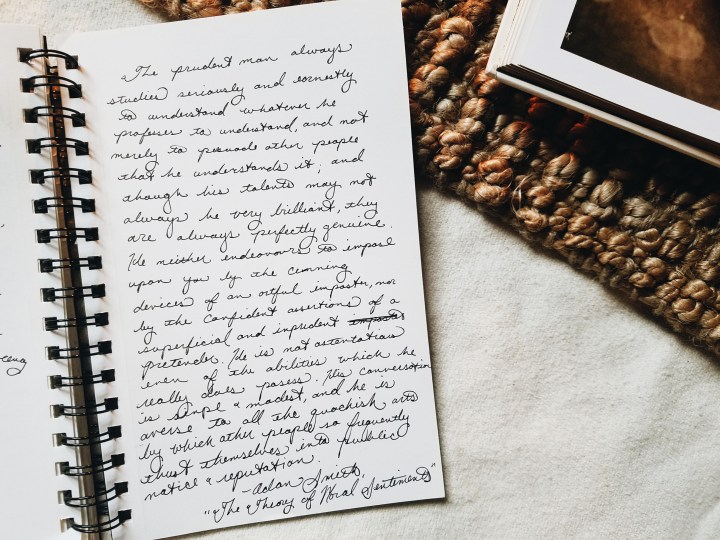 The prudent man always
studies seriously and earnestly
to understand whatever he
professes to understand, and not
merely to persuade other people
that he understands it; and
though his talents may not
always be very brilliant, they
are always perfectly genuine.
He neither endeavours to impose
upon you by the cunning
devices of an artful imposter, nor
by the confident assertions of a
superficial and inprudent imposter
pretender. He is not ostentatious
even of the abilities which he
really does posess. His conversation
is simple & modest, and he is
averse to all the quackish arts
by which other people so frequently
thust themselves into public
notice & reputation.
-Adam Smith,
"The Theory of Moral Sentiments"